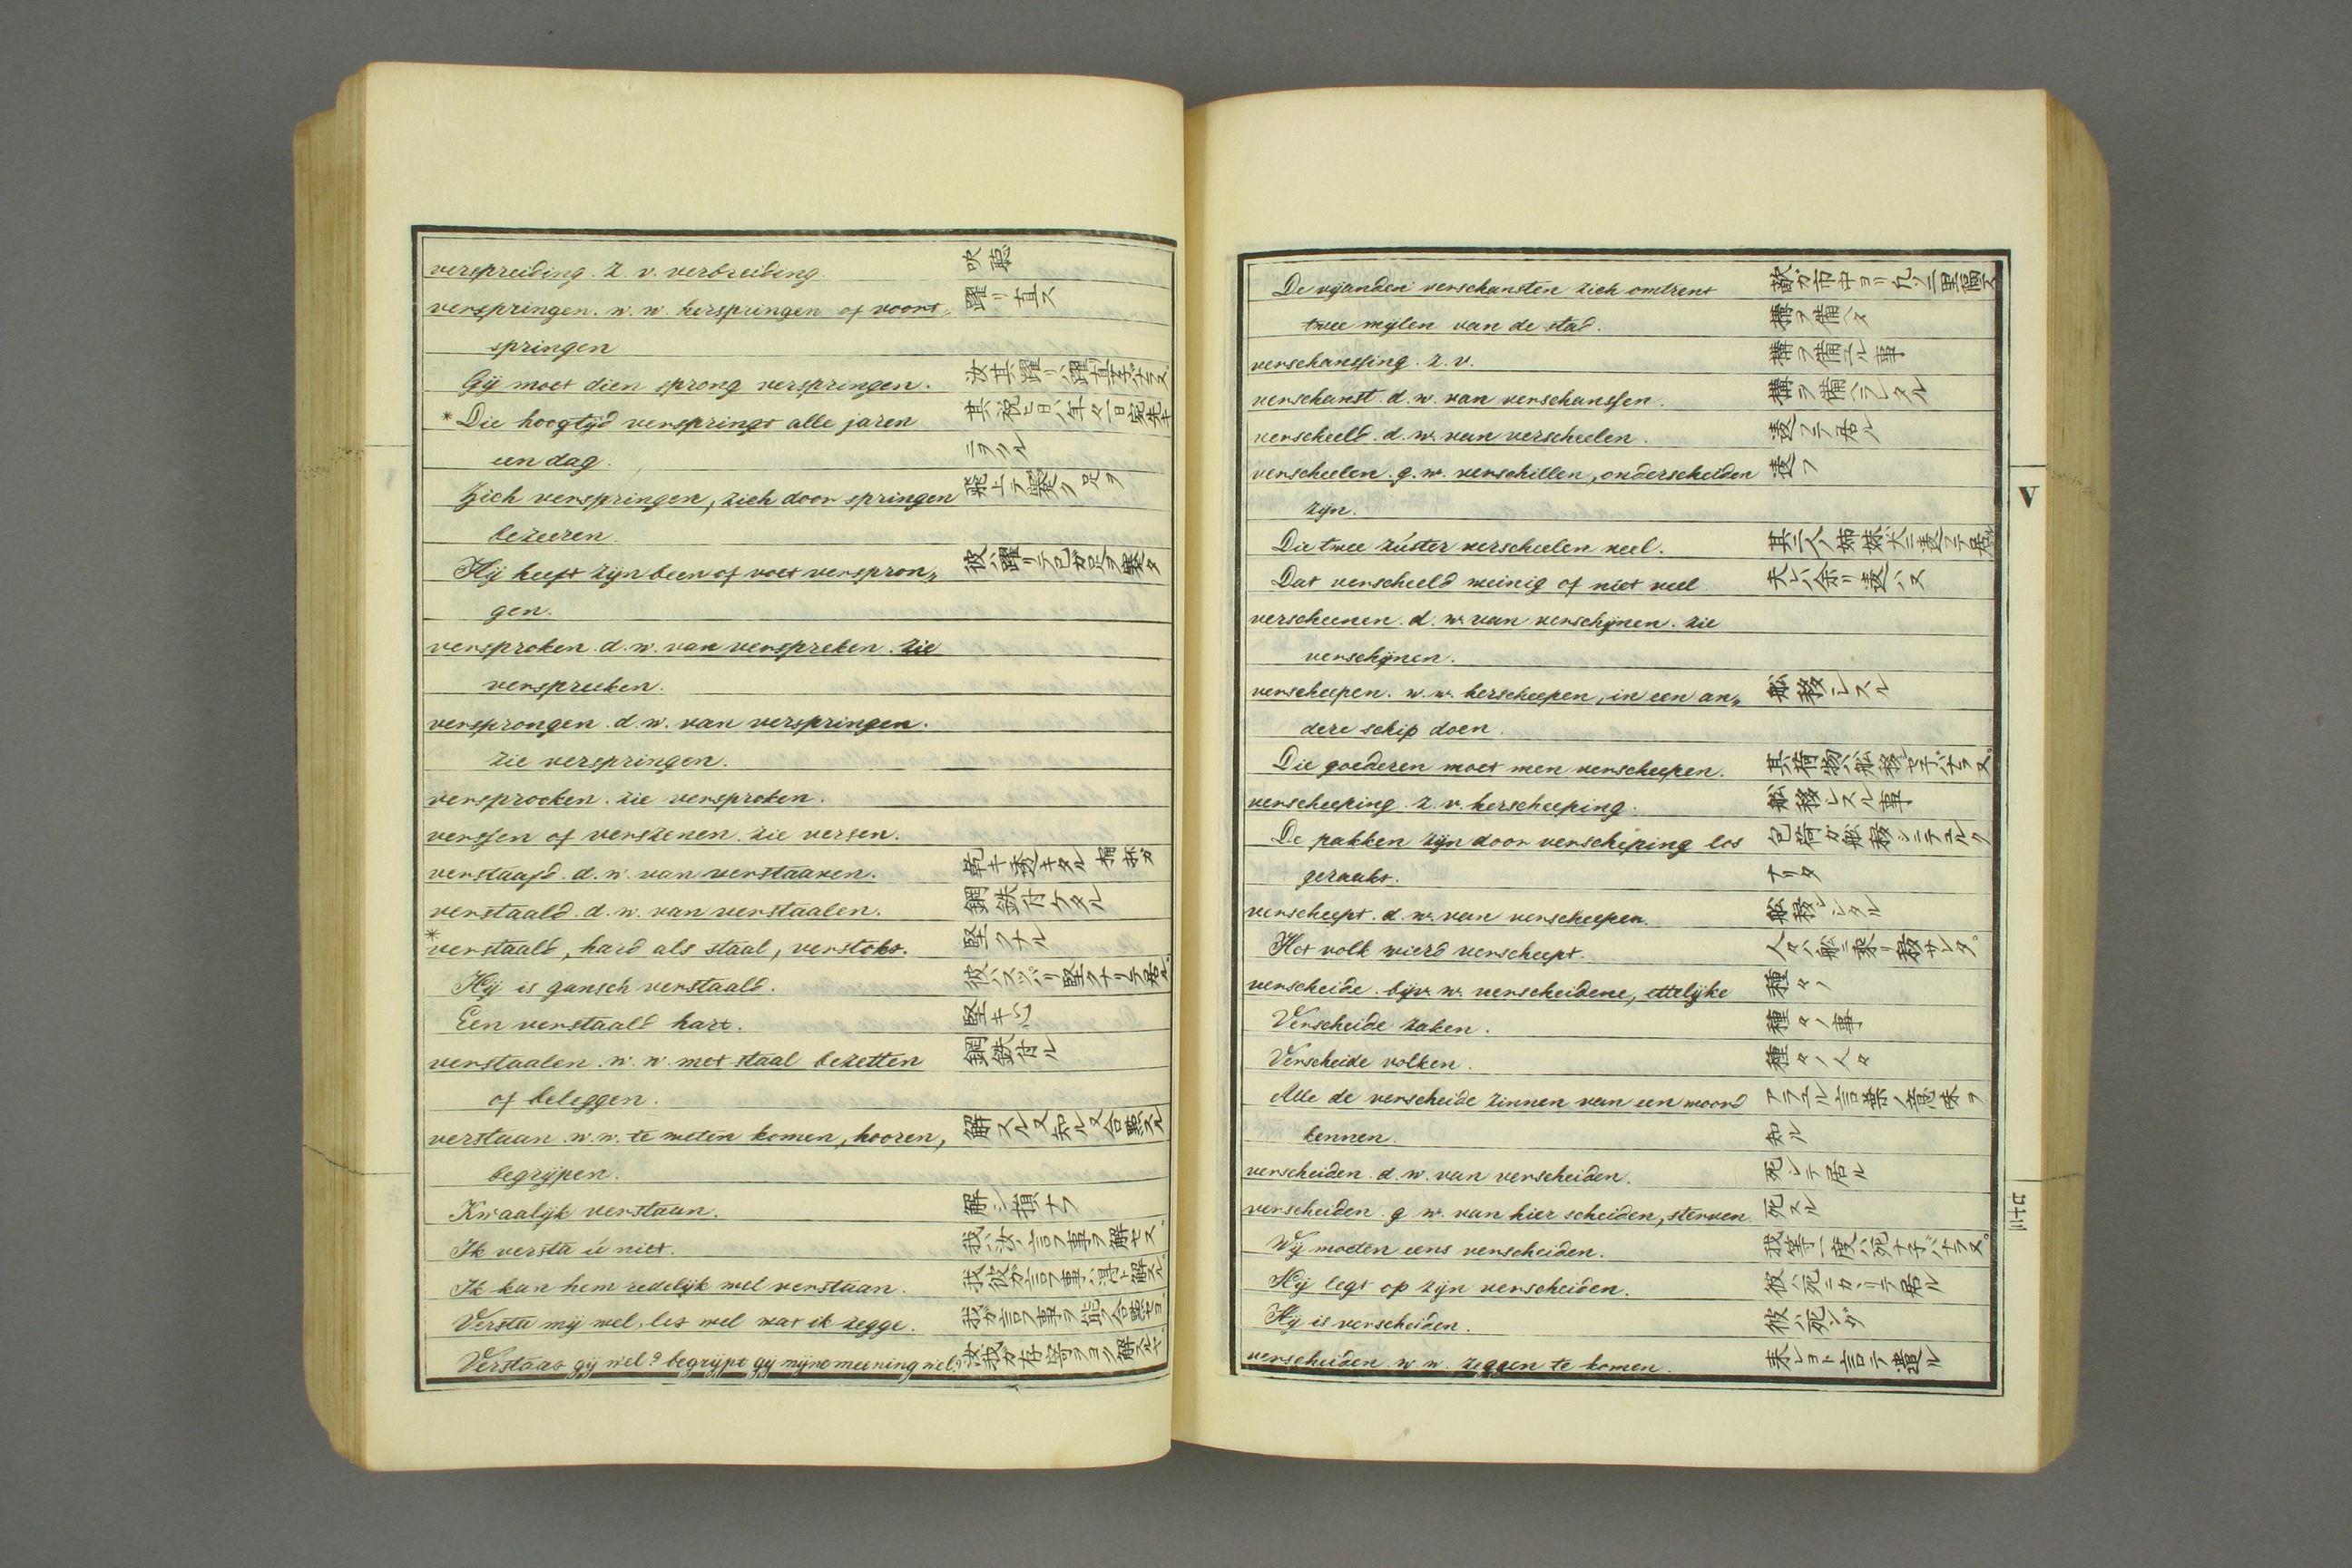 verspreiding. z. v. verbreiding. 吹聴
verspringen. w. w. herspringen of voort„ 躍リ直ス
springen
Gij moet dien sprong verspringen. 汝其躍リハ躍直子バナラヌ
* Die hoogtijd verspringt alle jaren 其祝ヒ日ハ年々一日宛先キ
een dag.
Zich verspringen, zich door springen 飛上テ蹇ク足ヲ
bezeeren.
Hij heeft zijn been of voet verspron„ 彼ハ躍リテ己ガ足ヲ蹇タ
gen.
versproken. d. w. van verspreken. zie
verspreeken.
versprongen. d. w. van verspringen.
zie verspringen.
versprocken. zie versproken.
verssen of verszenen. zie versen.
verstaafd. d. w. van verstaaven. 乾キ透キタル
verstaald. d. w. van verstaalen. 鋼鉄付ケタル
* verstaald, hard als staal, verstokt. 堅クナル
Hij is gansch verstaald. 彼ハスッパリ堅クナリテ居ル
Een verstaald hart. 堅キ心
verstaalen. w. w. met staal bezetten 鋼鉄付ル
of beleggen.
verstaan. w. w. te weten komen, hooren, 解スル又知ル又合點スル
begrijpen.
Kwaalijk verstaan. 解シ損ナフ
Ik versta ú niet. 我ハ汝ノ言フ事ヲ解セヌ
Ik kan hem redelijk wel verstaan. 我彼ガ言フ事ハ得ト解スル
Versta mij wel, les wel wat ik zegge. 我ガ言フ事ヲ能ク合點セヨ
Verstaat gij wel? begrijpt gij mijne meening wel? 汝我ガ存寄ヲヨク解スルヤ
De vijanden verschansten zich omtrent 敵ガ市中ヨリ凡ソ二里隔テ
twee mijlen van de stad. 構ヲ備ヘタ
verschanssing. z. v. 構ヲ備エル事
verschanst. d. w. van verschanssen. 構ヲ備ヘラレタル
verscheeld. d. w. van verscheelen. 違フテ居ル
verscheelen. g. w. verschillen, onderscheiden 違フ
zijn.
Die twee zúster verscheelen veel. 其二人ノ姉妹ハ大ニ違フテ居ル
Dat verscheeld weinig of niet veel 夫レハ余リ違ハヌ
verscheenen. d. w. van verschijnen. zie
verschijnen.
verscheepen. w. w. herscheepen, in een an„ 舩移シスル
dere schip doen.
Die goederen moet men verscheepen. 其荷物ハ舩移セ子バナラヌ
verscheeping. z. v. herscheeping. 舩移シスル事
De pakken zijn door verscheping los 包荷ガ舩移シニテユルク
geraakt. ナリタ
verscheept. d. w. van verscheepen. 舩移シシタル
Het volk wierd verscheept. 人々ハ舩ニ乗リ移サレタ
verscheide. bijv. w. verscheidene, ettelijke 種々ノ
Verscheide zaken. 種々ノ事
Verscheide volken. 種々ノ人々
Alle de verscheide zinnen van een woord アラユル言葉ノ意味ヲ
kennen. 知ル
verscheiden. d. w. van verscheiden. 死シテ居ル
verscheiden. g. w. van hier scheiden, sterven. 死スル
Wij moeten eens verscheiden. 我等一度ハ死ナ子バナラヌ
Hij legt op zijn verscheiden. 彼ハ死ニカヽリテ居ル
Hij is verscheiden. 彼ハ死シタ
verscheiden. w. w. zeggen te komen. 来レヨト言テ遣ル
V